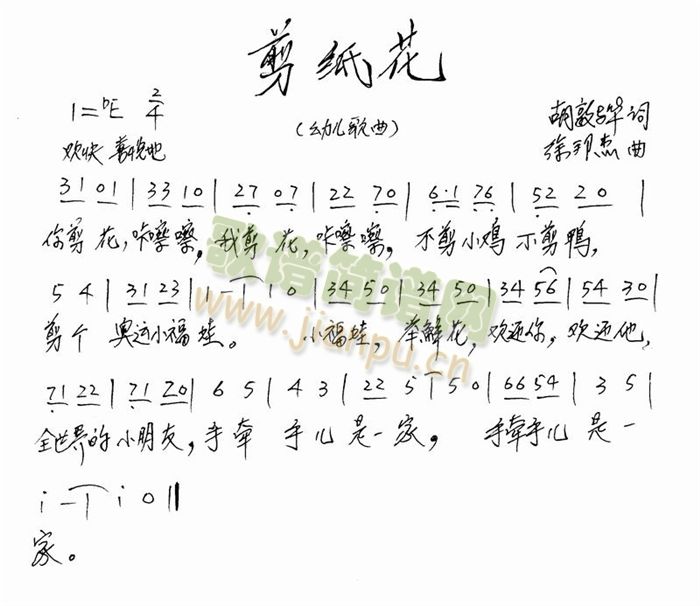 剪纸花
(幼儿歌曲)
1=bE 2/4
欢快 喜悦地
胡敦骅 词
徐邦杰 曲
31 01 | 33 10 | 27 07 | 22 70 | 6·1 76 | 52 20 |
你剪 花,咔嚓嚓,我剪 花,咔嚓嚓, 不剪小鸡 不剪鸭,
5 4 | 31 23 | 1 - | 1 0 | 34 50 | 34 50 | 34 56 | 54 30 |
剪个 奥运小福娃。 小福娃, 举鲜花,欢迎你,欢迎他,
71 22 | 71 20 | 6 5 | 4 3 | 22 5 | 5 0 | 66 54 | 3 5 |
全世界的小朋友,手牵 手儿 是一家, 手牵手儿 是一
i - | i 0 ‖
家。
歌谱简谱网
www.jianpu.cn